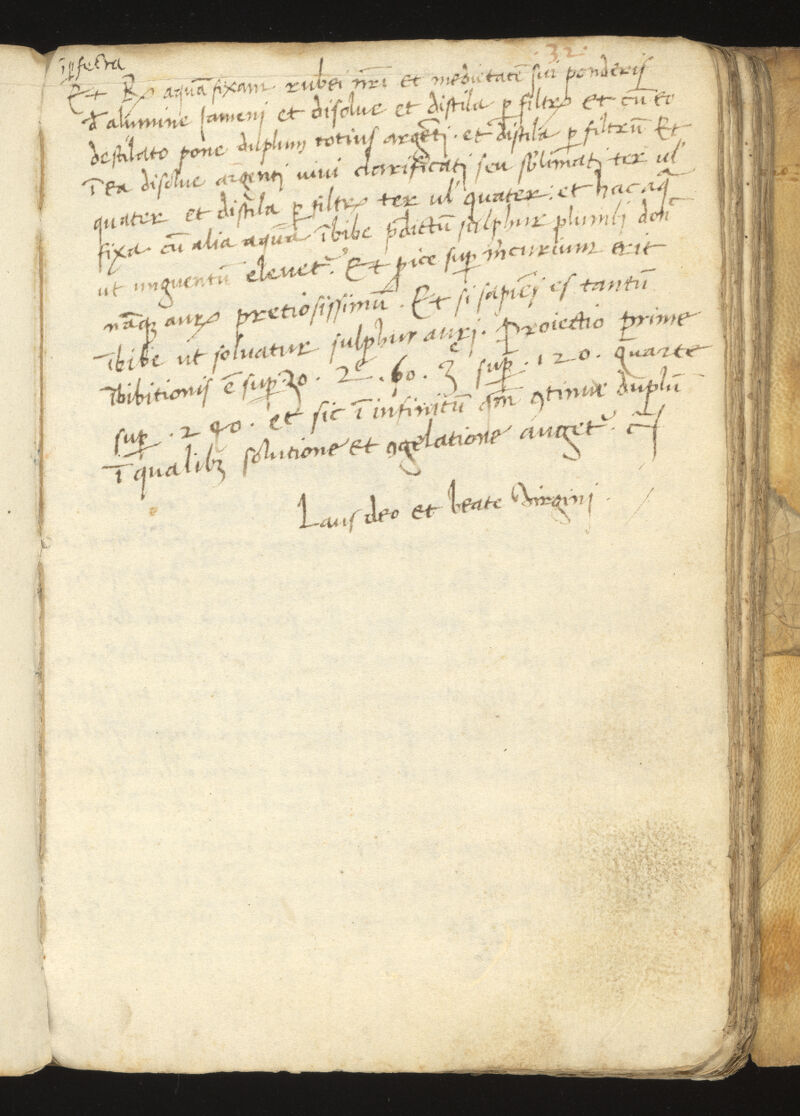 32
īꝑfecta
Et ℞ aquā fixam rubei nr̄i et medietatē sui ponderis
d̄ alumine Jameni et disolue et distila ꝑ filtrꝫ et cū eo
destilato pone duplum totius argēti · et distila ꝑ filtrū Et
ī ea disolue argenti uiui clarificati seu sb̄limati ter ul'
quater et distila ꝑ filtrꝫ ter ul' quater : et hac aq̄
fixa cū alia aquā ībibe p̄dictū sulphur plumbi don̄
ut unguentū eleuet᷑. Et ꝓice suꝑ m̄curium erit
nāqꝫ aurꝫ pretiosissimū. Et si sapiēs es tantū
ībibe ut soluatur sulphur auri. Proiectio prime
ībibitionis ē suꝑ 30. 2ᵉ . 60 . 3ᵉ suꝑ . 120 . quarte
suꝑ . 240 . et sic ī infinitū qm̄ ꝯtinue duplū
ī qualibꝫ solutione et ꝯgelatione auget᷑.
Laus deo et beate Virgini .